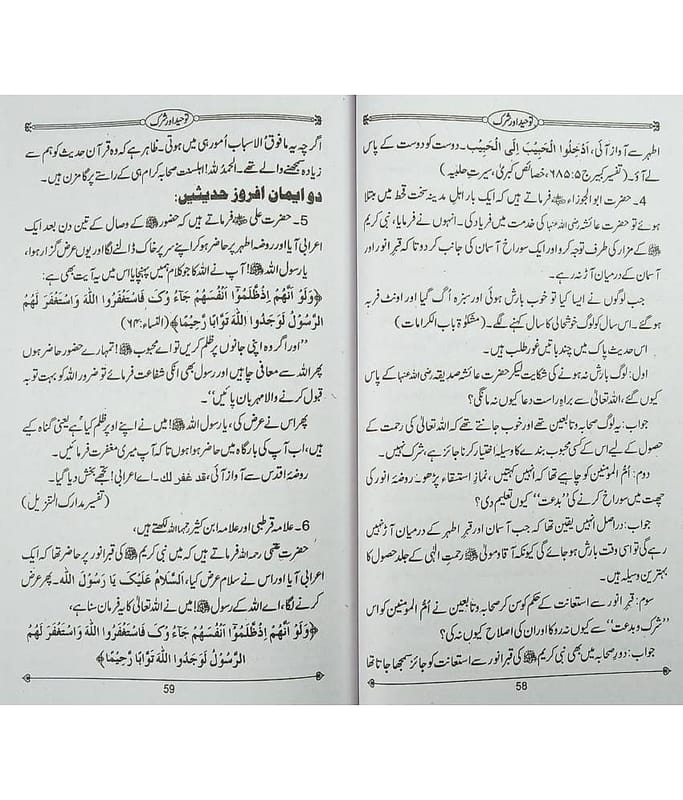 توحید اور شرک
اطہر سے آواز آئی، اَدْخِلُوا الْحَبِیْبَ اِلَی الْحَبِیْبِ۔ دوست کو دوست کے پاس
لے آؤ۔ (تفسیر کبیر ج ۵:۶۸۵، خصائص کبریٰ، سیرت حلبیہ)
4۔ حضرت ابوالجوزاء فرماتے ہیں کہ ایک بار اہلِ مدینہ سخت قحط میں مبتلا
ہوئے تو حضرت عائشہ رضی اللہ عنہا کی خدمت میں فریاد کی۔ انہوں نے فرمایا، نبی کریم
ﷺ کے مزار کی طرف توجہ کرو اور ایک سوراخ آسمان کی جانب کر دو تا کہ قبرِ انور اور
آسمان کے درمیان آڑ نہ رہے۔
جب لوگوں نے ایسا کیا تو خوب بارش ہوئی اور سبزہ اُگ گیا اور اونٹ فربہ
ہو گئے۔ اس سال کو لوگ خوشحالی کا سال کہنے لگے۔ (مشکوٰۃ باب الکرامات)
اس حدیث پاک میں چند باتیں غور طلب ہیں۔
اول: لوگ بارش نہ ہونے کی شکایت لیکر حضرت عائشہ صدیقہ رضی اللہ عنہا کے پاس
کیوں گئے، اللہ تعالیٰ سے براہِ راست دعا کیوں نہ مانگی؟
جواب: یہ لوگ صحابہ و تابعین تھے اور خوب جانتے تھے کہ اللہ تعالیٰ کی رحمت کے
حصول کے لیے اس کے کسی محبوب بندے کا وسیلہ اختیار کرنا جائز ہے، شرک نہیں۔
دوم: اُمُّ المومنین کو چاہیے تھا کہ انہیں کہتیں، نمازِ استسقاء پڑھو۔ روضۂ انور کی
چھت میں سوراخ کرنے کی ”بدعت“ کیوں تعلیم دی؟
جواب: دراصل انہیں یقین تھا کہ جب آسمان اور قبرِ اطہر کے درمیان آڑ نہیں
رہے گی تو اسی وقت بارش ہو جائے گی کیونکہ آقا و مولیٰ ﷺ رحمتِ الٰہی کے جلد حصول کا
بہترین وسیلہ ہیں۔
سوم: قبرِ انور سے استعانت کے حکم کو سن کر صحابہ و تابعین نے اُمُّ المومنین کو اس
”شرک و بدعت“ سے کیوں نہ روکا اور ان کی اصلاح کیوں نہ کی؟
جواب: دورِ صحابہ میں بھی نبی کریم ﷺ کی قبرِ انور سے استعانت کو جائز سمجھا جاتا تھا
58
توحید اور شرک
اگر چہ یہ مافوق الاسباب اُمور ہی میں ہوتی۔ ظاہر ہے کہ وہ قرآن حدیث کو ہم سے
زیادہ سمجھنے والے تھے۔ الحمدُ للہ! اہلسنت صحابہ کرام ہی کے راستے پر گامزن ہیں۔
دو ایمان افروز حدیثیں:
5۔ حضرت علی فرماتے ہیں کہ حضور ﷺ کے وصال کے تین دن بعد ایک
اعرابی آیا اور روضہ اطہر پر حاضر ہو کر اپنے سر پر خاک ڈالنے لگا اور یوں عرض گزار ہوا،
یا رسول اللہ ﷺ! آپ نے اللہ کا جو کلام ہمیں پہنچایا اس میں یہ آیت بھی ہے:
﴿وَلَوْ اَنَّهُمْ اِذْ ظَّلَمُوْا اَنْفُسَهُمْ جَاءُوْکَ فَاسْتَغْفَرُوا اللّٰهَ وَاسْتَغْفَرَ لَهُمُ
الرَّسُوْلُ لَوَجَدُوا اللّٰهَ تَوَّابًا رَّحِیْمًا﴾ (النساء:۶۴)
”اور اگر وہ اپنی جانوں پر ظلم کریں تو اے محبوب ﷺ! تمہارے حضور حاضر ہوں
پھر اللہ سے معافی چاہیں اور رسول بھی انکی شفاعت فرمائے تو ضرور اللہ کو بہت توبہ
قبول کرنے والا مہربان پائیں“۔
پھر اس نے عرض کی، یا رسول اللہ ﷺ! میں نے اپنے اوپر ظلم کیا ہے یعنی گناہ کیے
ہیں، اب آپ کی بارگاہ میں حاضر ہوا ہوں تا کہ آپ میری مغفرت فرمائیں۔
روضۂ اقدس سے آواز آئی، قد غفر لک۔ اے اعرابی! تجھے بخش دیا گیا۔
(تفسیر مدارک التنزیل)
6۔ علامہ قرطبی اور علامہ ابن کثیر رحمہما اللہ لکھتے ہیں،
حضرت عتبی رحمہ اللہ فرماتے ہیں کہ میں نبی کریم ﷺ کی قبرِ انور پر حاضر تھا کہ ایک
اعرابی آیا اور اس نے سلام عرض کیا، اَلسَّلَامُ عَلَیْکَ یَا رَسُوْلَ اللّٰهِ۔ پھر عرض
کرنے لگا، اے اللہ کے رسول ﷺ! میں نے اللہ تعالیٰ کا یہ فرمان سنا ہے،
﴿وَلَوْ اَنَّهُمْ اِذْ ظَّلَمُوْا اَنْفُسَهُمْ جَاءُوْکَ فَاسْتَغْفَرُوا اللّٰهَ وَاسْتَغْفَرَ لَهُمُ
الرَّسُوْلُ لَوَجَدُوا اللّٰهَ تَوَّابًا رَّحِیْمًا﴾
59